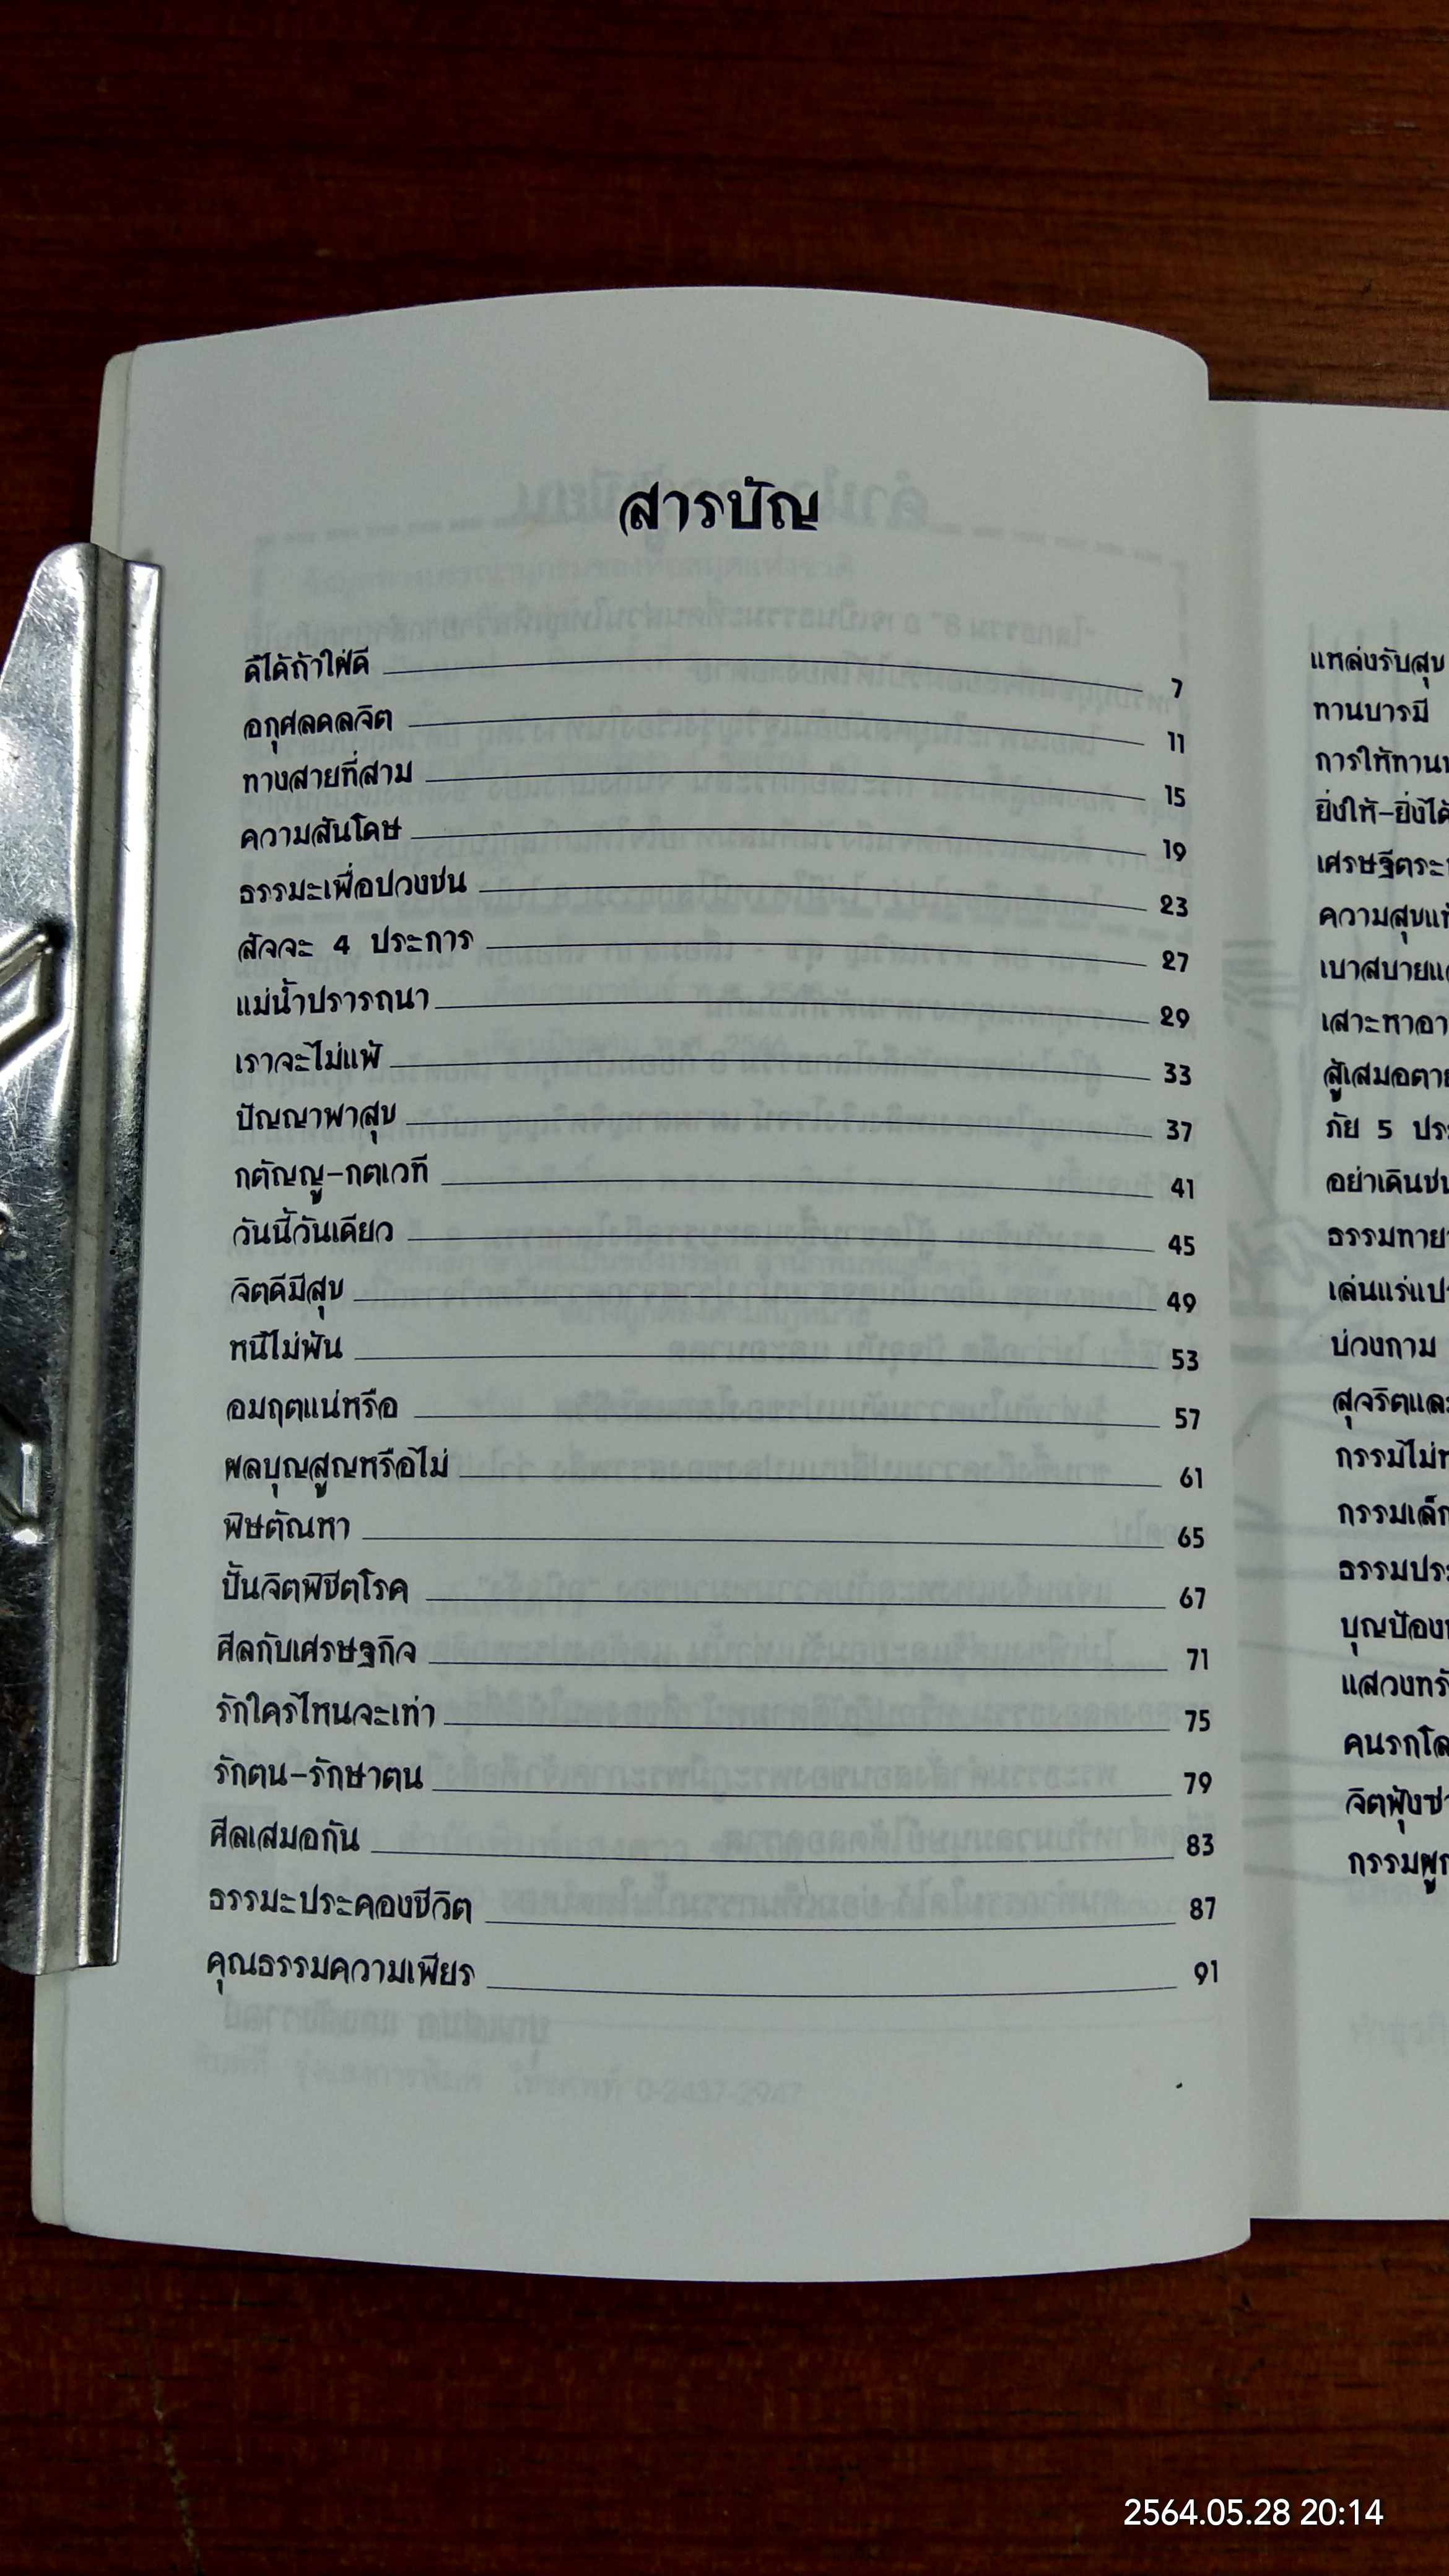 สารบัญ
ดีได้ถ้าใฝ่ดี 7
อกุศลดลจิต 11
ทางสายที่สาม 15
ความสันโดษ 19
ธรรมะเพื่อปวงชน 23
สัจจะ 4 ประการ 27
แม่น้ำปรารถนา 29
เราจะไม่แพ้ 33
ปัญญาพาสุข 37
กตัญญู-กตเวที 41
วันนี้วันเดียว 45
จิตดีมีสุข 49
หนีไม่พ้น 53
อมฤตแน่หรือ 57
ผลบุญสูญหรือไม่ 61
พิษตัณหา 65
ปั้นจิตพิชิตโรค 67
ศีลกับเศรษฐกิจ 71
รักใครไหนจะเท่า 75
รักตน-รักษาตน 79
ศีลเสมอกัน 83
ธรรมะประคองชีวิต 87
คุณธรรมความเพียร 91
แหล่งรับสุข
ทานบารมี
การให้ทาน
ยิ่งให้-ยิ่งได้
เศรษฐีตระ
ความสุขแท้
เบาสบาย
เสาะหาอา
สู้เสมอตาย
ภัย 5 ประ
อย่าเดินชน
ธรรมทายา
เล่นแร่แปร
บ่วงกาม
สุจริตและ
กรรมไม่
กรรมเล็ก
ธรรมประ
บุญป้อง
แสวงทรั
คนรกโล
จิตฟุ้งซ่า
กรรมผูก
2564.05.28 20:14